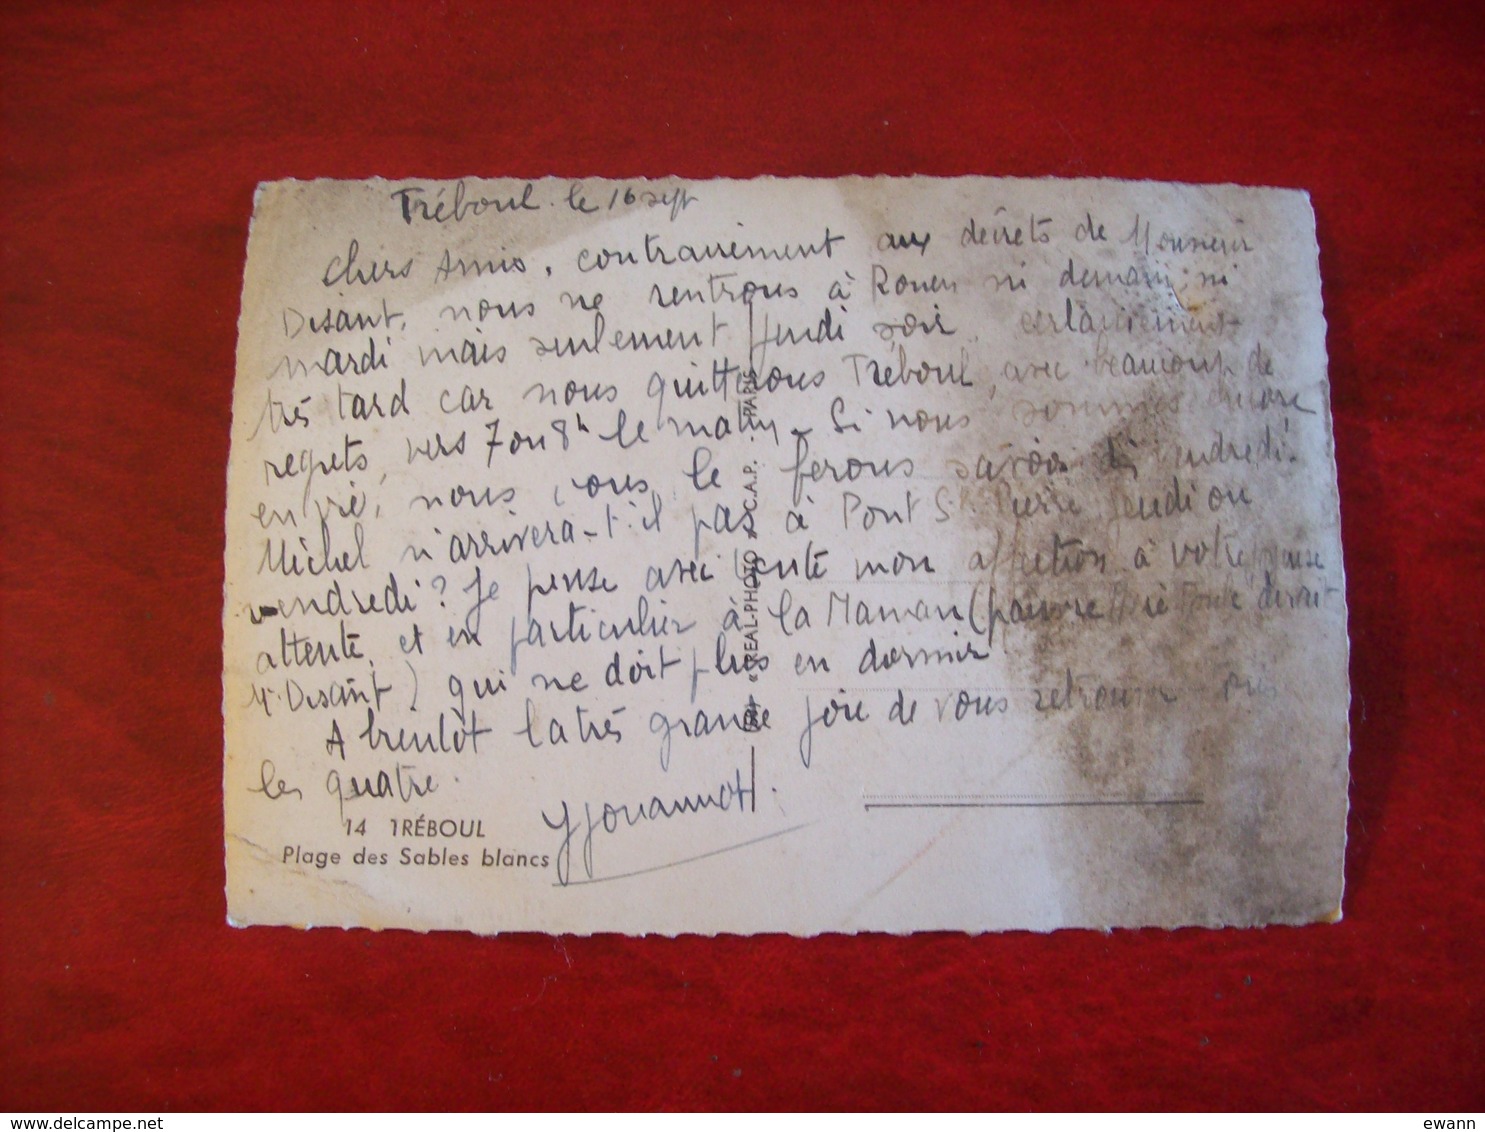 Tréboul. le 16 sept
Chers Amis, contrairement aux décrets de Monsieur
Disant, nous ne rentrons à Rouen ni demain, ni
mardi mais seulement jeudi soir, certainement
très tard car nous quitterons Tréboul, avec beaucoup de
regrets, vers 7 ou 8h le matin. Si nous sommes encore
en vie, nous vous le ferons savoir dès vendredi.
Michel n'arrivera-t-il pas à Pont St Pierre jeudi ou
vendredi? Je pense avec toute mon affection à votre
attente, et en particulier à la Maman (pauvre dirait
Mr Disant) qui ne doit plus en dormir
A bientôt la très grande joie de vous retrouver tous
les quatre.
YJouannot.
14 TRÉBOUL
Plage des Sables blancs
« REAL-PHOTO » C.A.P. - PARIS
delcampe.net
ewann